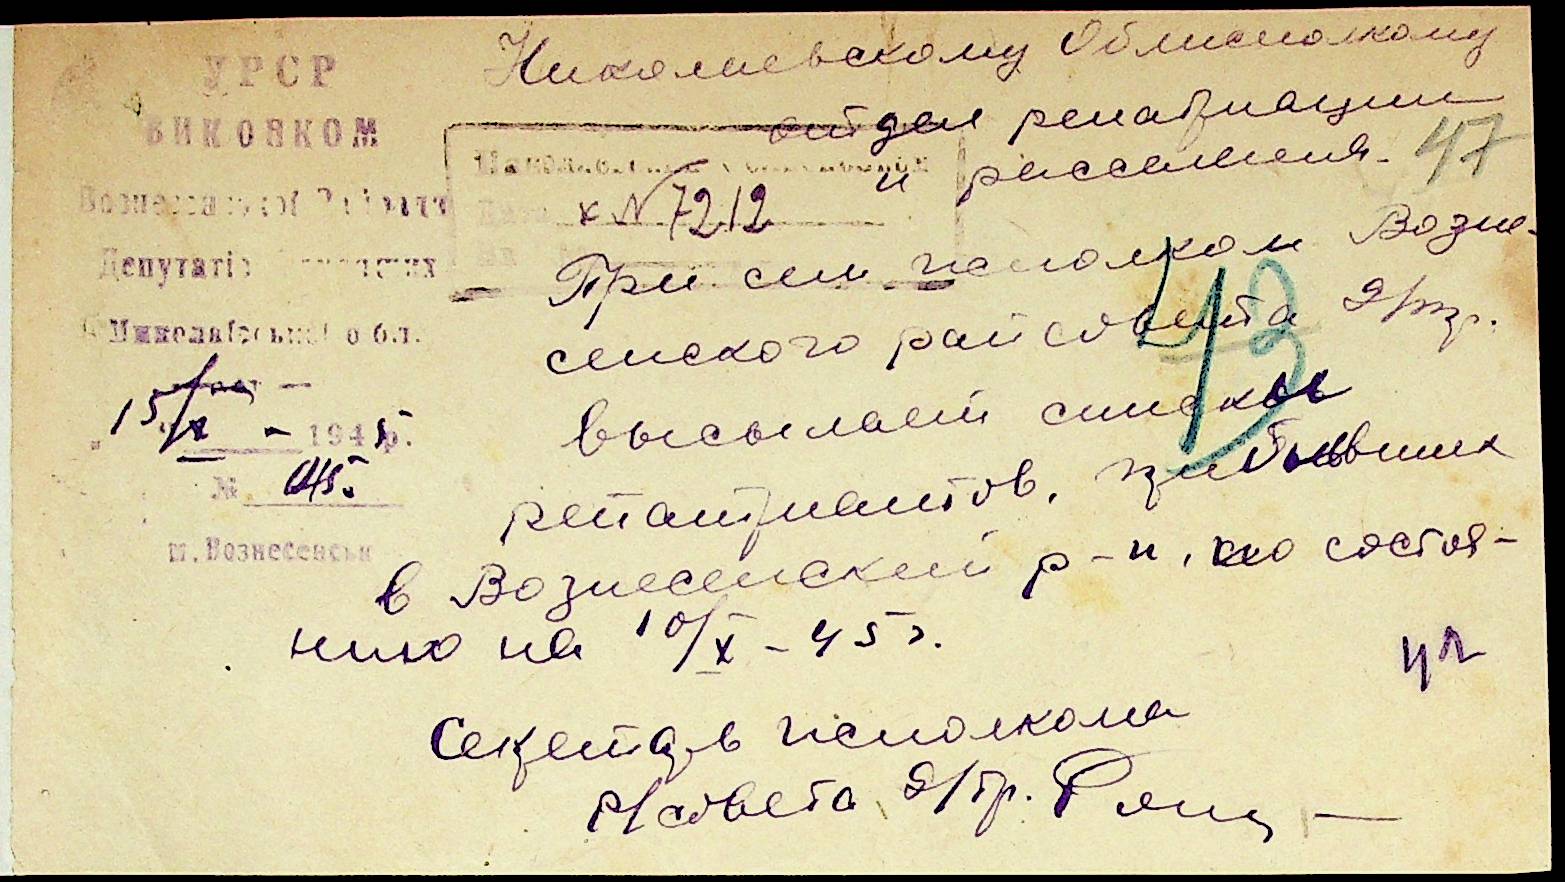 УРСР
ВИКОНКОМ
Вознесенської Районн
Депутатів трудящих
Миколаївської обл.
15/X - 1945 р.
№ 045
м. Вознесенськ
Николаевскому Облисполкому
отдел репатриации
и расселения.
47
к № 7212
При сем исполком Возне-
сенского райсовета д/тр.
43
высылает списки
репатриантов, прибывших
в Вознесенский р-н, по состоя-
нию на 10/X - 45 г.
Секретарь исполкома
р/совета д/тр.